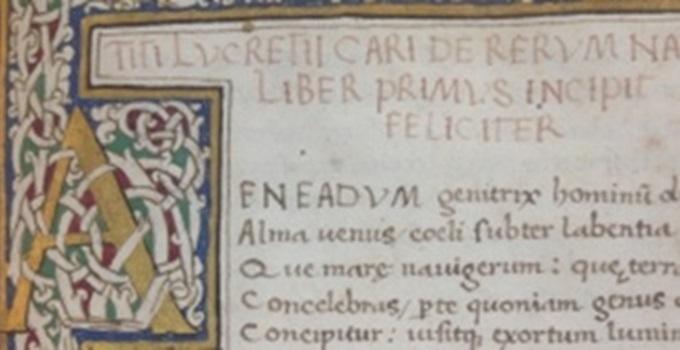 TITI LVCRETII CARI DE RERVM NA
LIBER PRIMVS INCIPIT
FELICITER
AENEADVM genitrix hominū d
Alma uenus/ coeli subter labentia
Que mare nauigerum: quę terr
Concelebras/ pte quoniam genus
Concipitur: uisitq, exortum lumin